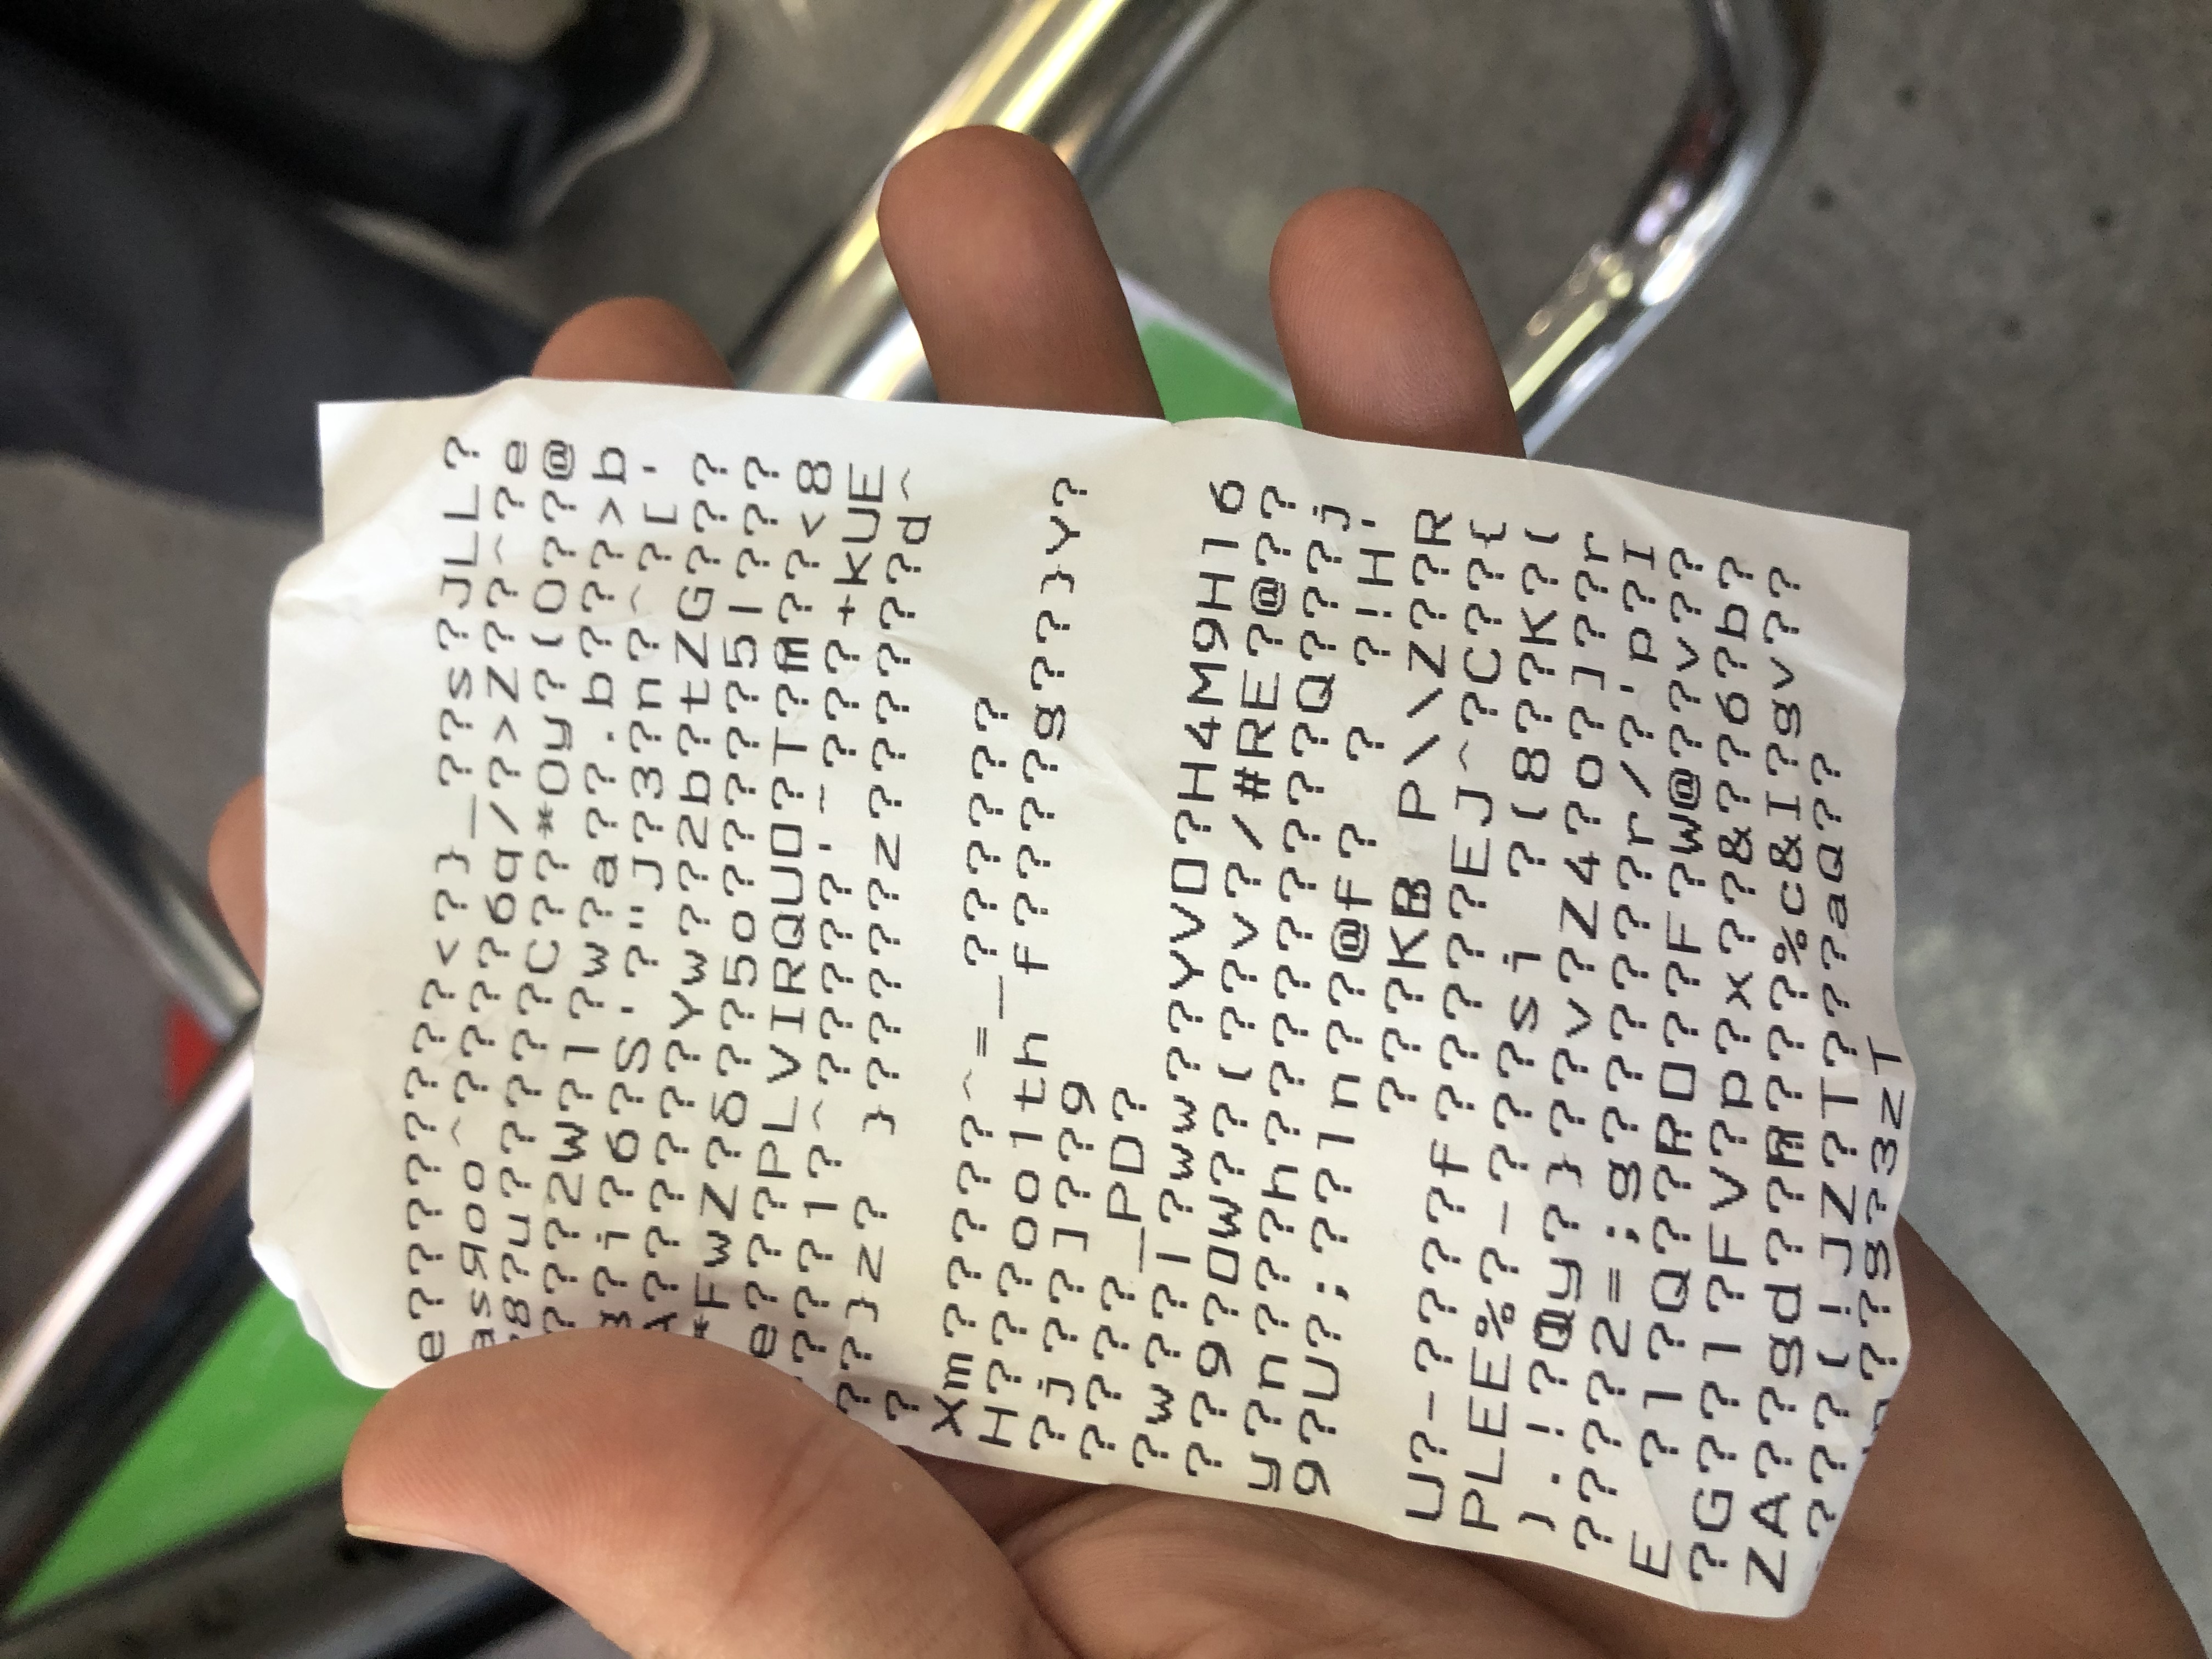 e????????<?}_??s?JLL?
asqoo^????6q/?>Z??^?e
?8?u????C??*Oy?(O??@
????2W?1?w?a??.b???>b
3?i?6?S'?"J?3?n?^?['
A???????Yw??2b?tZG???
*FwZ?δ??5o????5|????
e???PLVIRQUO?T?m??<8
????1?^?????'-???+KUE
??}z? }??????z??????d^
?
Xm??????^=_???????
H????oo1th f?????g???}Y?
?j????]???g
?????_PD?
?w???|?ww???YVO?H4M9H16
???g?OW??(???v?/#RE?@??
y?n???h?????????Q????j
g?U?;??1n???@f? ? ?!H'
????KB P\\Z???R
U?-????f??????EJ^?C??{
PLEE%?-????si ?(8??K?(
).!?Qy?}???v?Z4?o?]???r
????2=;g??????r/?'p??I
E ?1?Q???RO???F?w@???v??
?G???1?FV?p?x???&???6?b?
ZA???gd???m????%c&I?gv??
????(!JZ?T????aQ??
??g?3zT